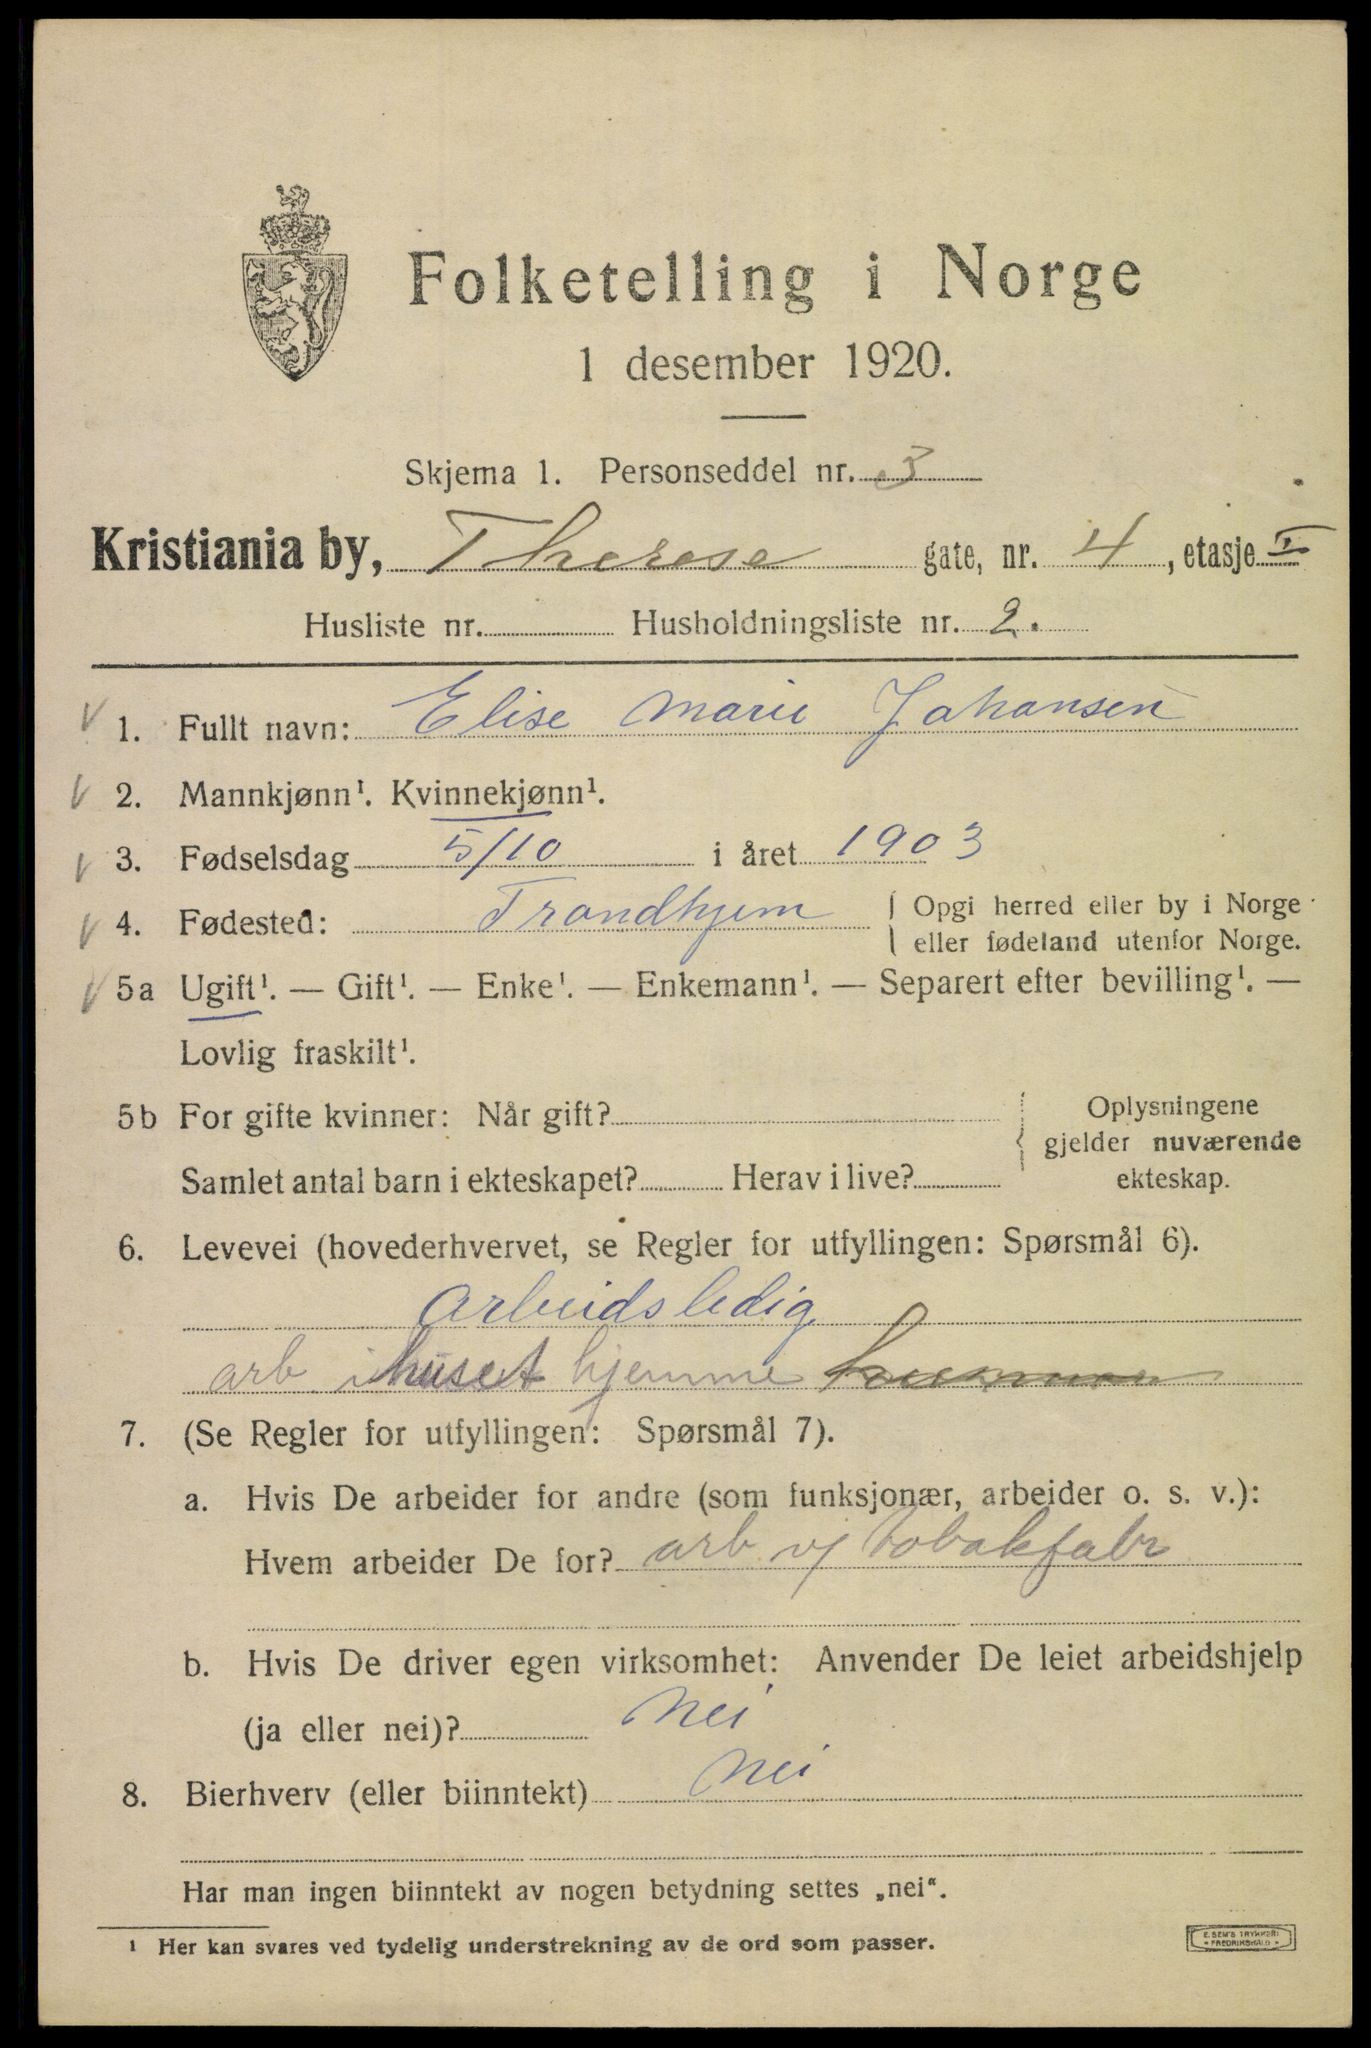 Folketelling i Norge
1 desember 1920.
Skjema 1. Personseddel nr. 3
Kristiania by, Therese gate, nr. 4, etasje I
Husliste nr. Husholdningsliste nr. 2.
1. Fullt navn: Elise Marie Johansen
2. Mannkjønn¹. Kvinnekjønn¹.
3. Fødselsdag 5/10 i året 1903
4. Fødested: Trondhjem { Opgi herred eller by i Norge
eller fødeland utenfor Norge.
5a Ugift¹. — Gift¹. — Enke¹. — Enkemann¹. — Separert efter bevilling¹. —
Lovlig fraskilt¹.
5b For gifte kvinner: Når gift?
Samlet antal barn i ekteskapet? Herav i live?
Oplysningene
gjelder nuværende
ekteskap.
6. Levevei (hovederhvervet, se Regler for utfyllingen: Spørsmål 6).
Arbeidsledig
arb i huset hjemme
7. (Se Regler for utfyllingen: Spørsmål 7).
a. Hvis De arbeider for andre (som funksjonær, arbeider o. s. v.):
Hvem arbeider De for? arb v/ tobakfabr
b. Hvis De driver egen virksomhet: Anvender De leiet arbeidshjelp
(ja eller nei)? Nei
8. Bierhverv (eller biinntekt) Nei
Har man ingen biinntekt av nogen betydning settes „nei“.
¹ Her kan svares ved tydelig understrekning av de ord som passer.
E. SEM'S TRYKKERI
• FREDRIKSHALD •